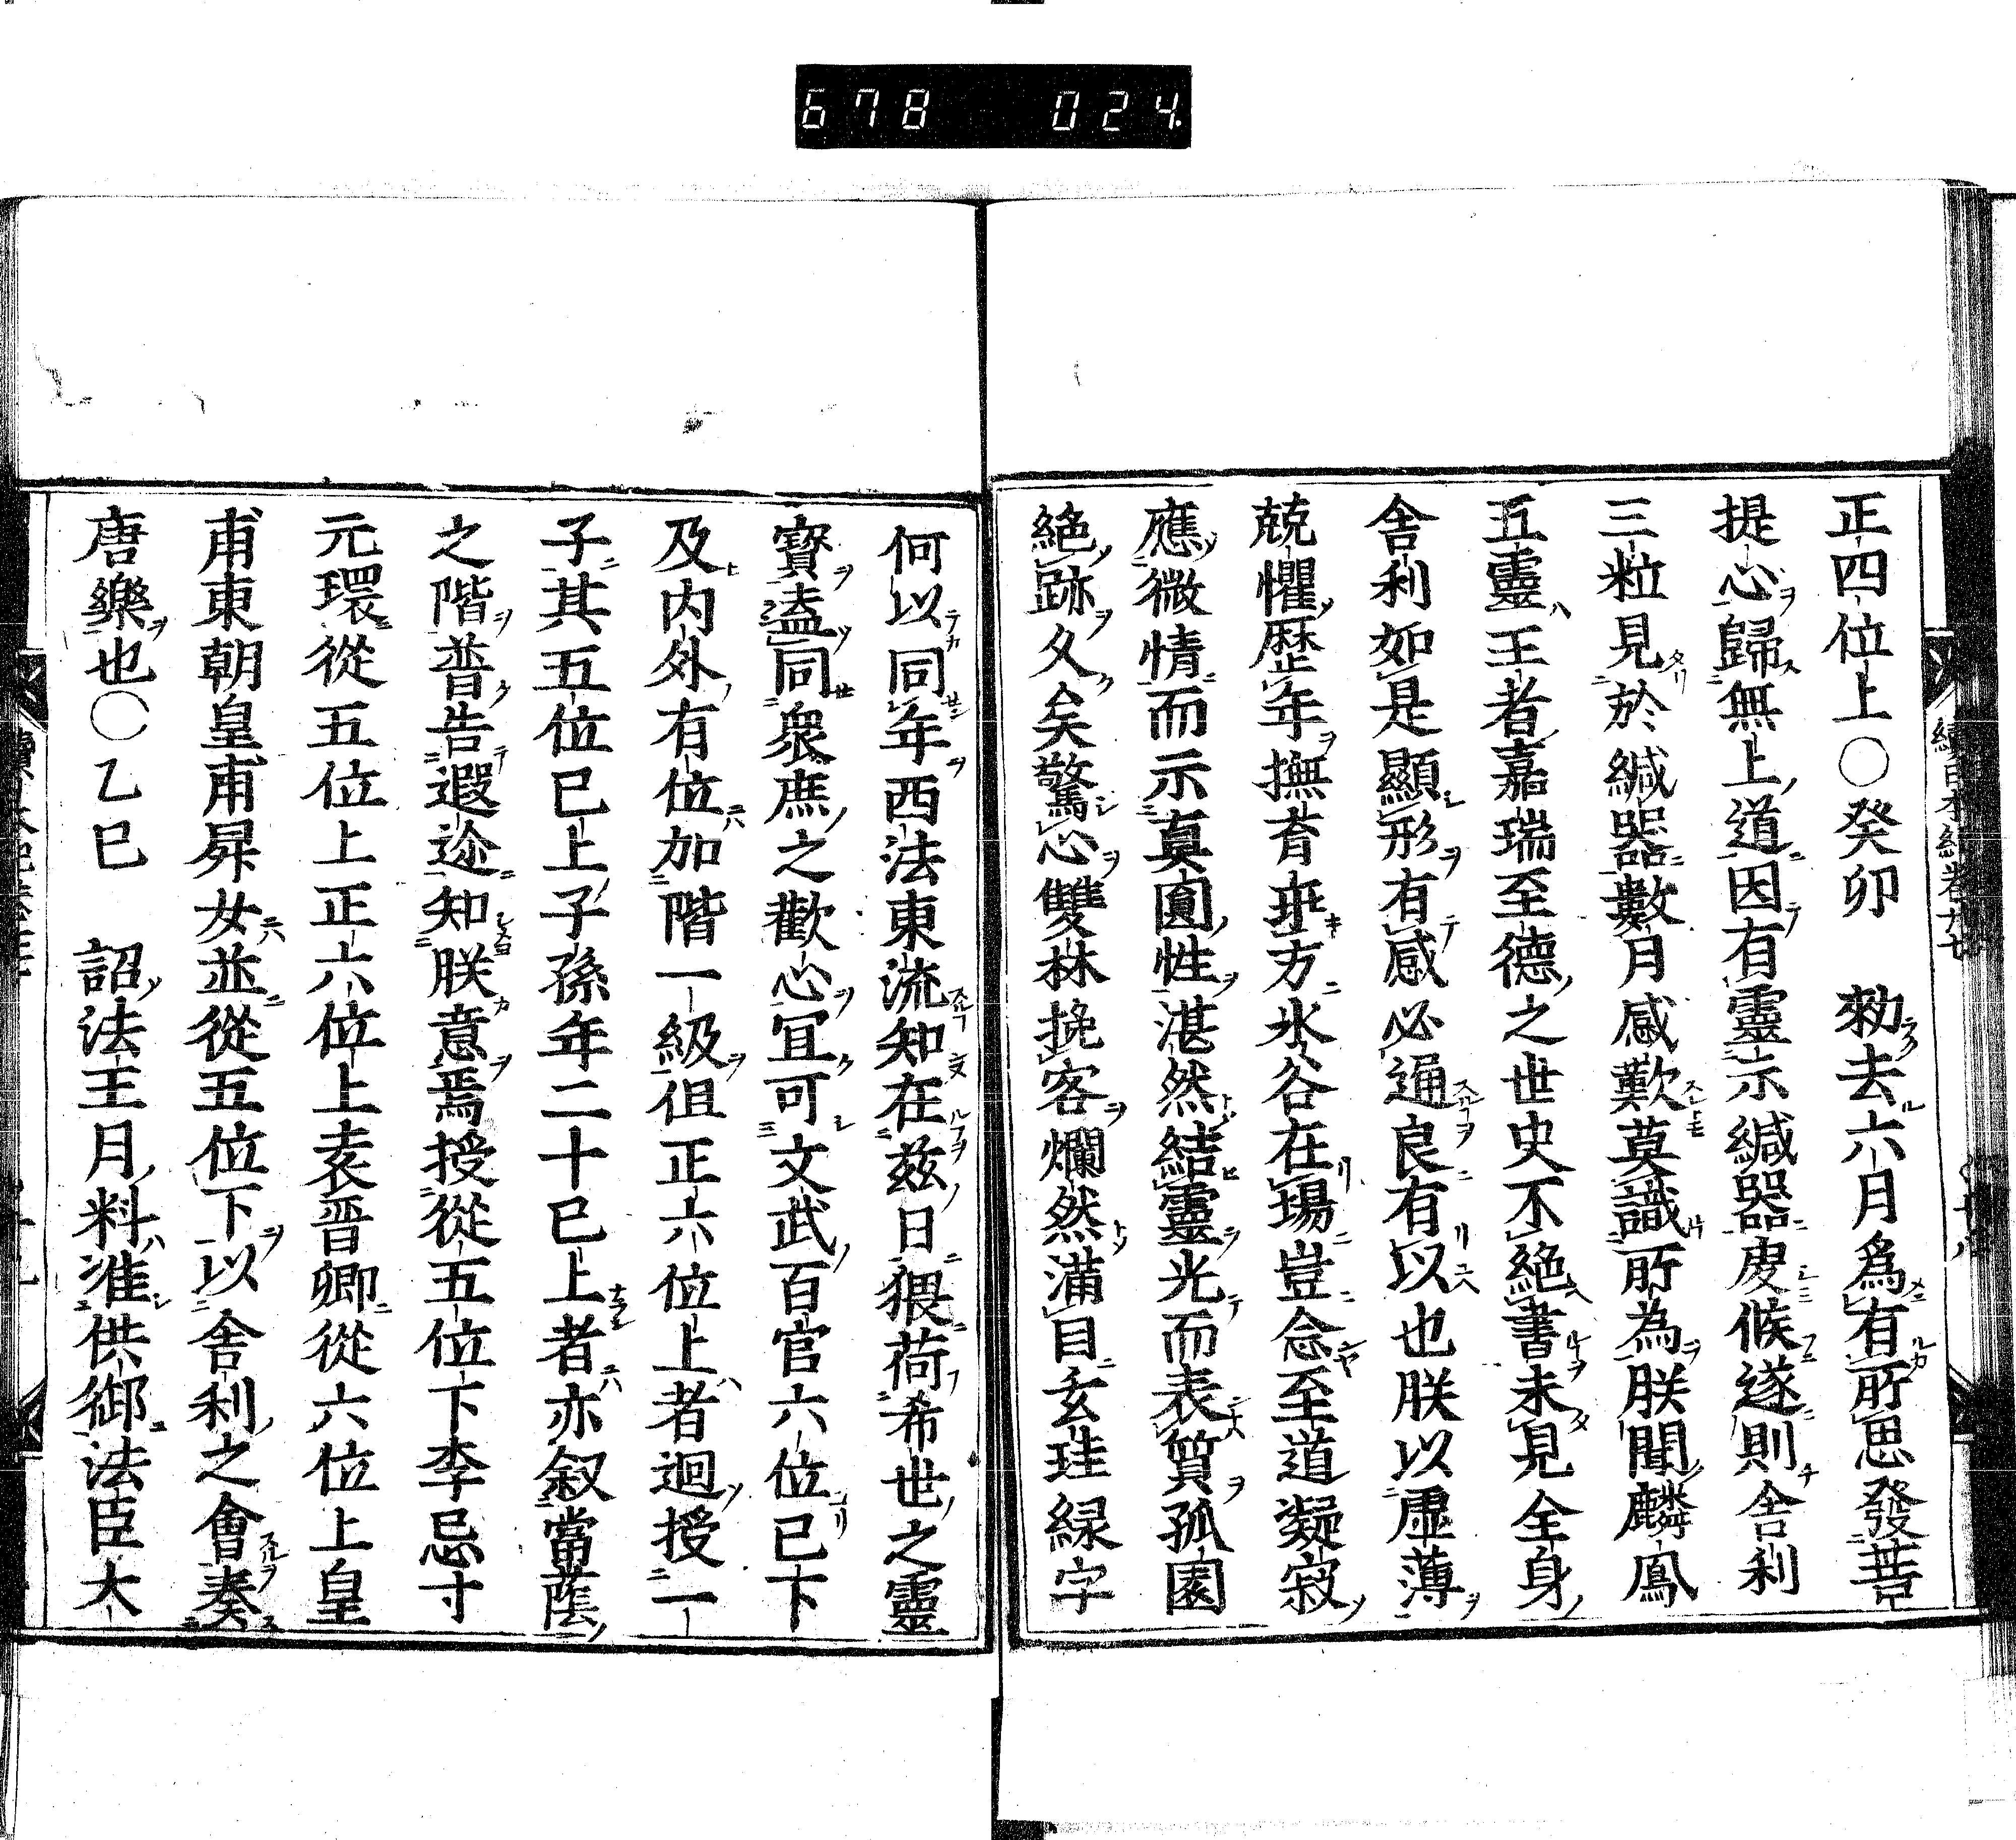 678 024.
正四位上〇癸卯 勅去六月爲有所思發菩
提心歸無上道因有靈示緘器虔候遂則舍利
三粒見於緘器數月感歎莫識所為朕聞麟鳳
五靈王者嘉瑞至德之世史不絶書未見全身
舍利如是顯形有感必通良有以也朕以虚薄
兢懼歴年撫育無方氷谷在場豈念至道凝寂
應微情而示真圓性湛然結靈光而表質孤園
絶跡久矣驚心雙林挽客爛然滿目玄珪緑字
何以同年西法東流知在兹日猥荷希世之靈
寳盍同衆庶之歡心宜可文武百官六位已下
及内外有位加階一級但正六位上者迴授一
子其五位已上子孫年二十已上者亦叙當蔭
之階普告遐迩知朕意焉授從五位下李忌寸
元環從五位上正六位上袁晋卿從六位上皇
甫東朝皇甫昇女並從五位下以舍利之會奏
唐樂也〇乙巳 詔法王月料准供御法臣大